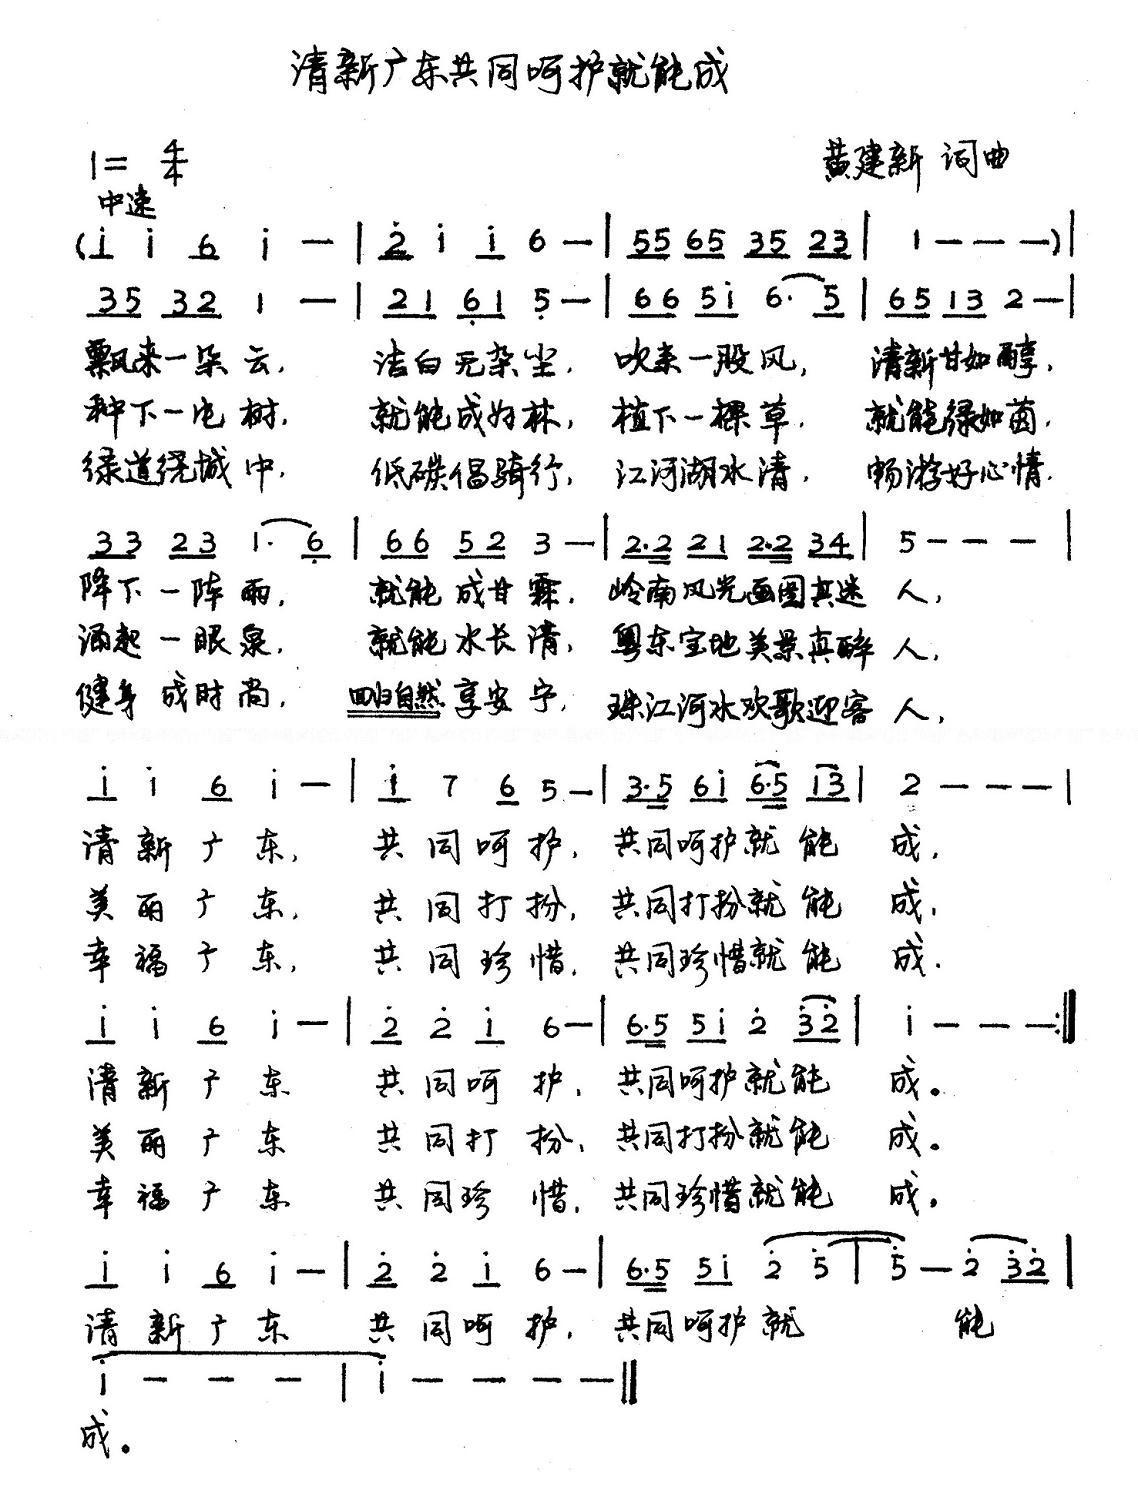 清新广东共同呵护就能成
1= 4/4
黄建新 词曲
中速
(i i 6 i — | 2 i i 6 — | 55 65 35 23 | 1 — — —)|
35 32 1 — | 21 61 5 — | 66 5i 6· 5 | 65 13 2 — |
飘来一朵云, 洁白无杂尘. 吹来一股风, 清新甘如醇,
种下一 树, 就能成好林, 植下一棵草. 就能绿如茵.
绿道绕城中, 低碳倡骑行, 江河湖水清, 畅游好心情.
33 23 1· 6 | 66 52 3 — | 2·2 21 2·2 34 | 5 — — — |
降下一阵雨, 就能成甘霖, 岭南风光画图真迷人,
涌起一眼泉, 就能水长清, 粤东宝地美景真醉人,
健身成时尚, 回归自然享安宁, 珠江河水欢歌迎客人,
i i 6 i — | i 7 6 5 — | 3·5 6i 6·5 13 | 2 — — — |
清新广东, 共同呵护, 共同呵护就能成,
美丽广东, 共同打扮, 共同打扮就能成,
幸福广东, 共同珍惜, 共同珍惜就能成.
i i 6 i — | 2 2 i 6 — | 6·5 5i 2 32 | i — — — :‖
清新广东 共同呵护, 共同呵护就能成。
美丽广东 共同打扮, 共同打扮就能成。
幸福广东 共同珍惜, 共同珍惜就能成。
i i 6 i — | 2 2 i 6 — | 6·5 5i 2 5 | 5 — 2 32 |
清新广东 共同呵护, 共同呵护就 能
i — — — | i — — — —‖
成。